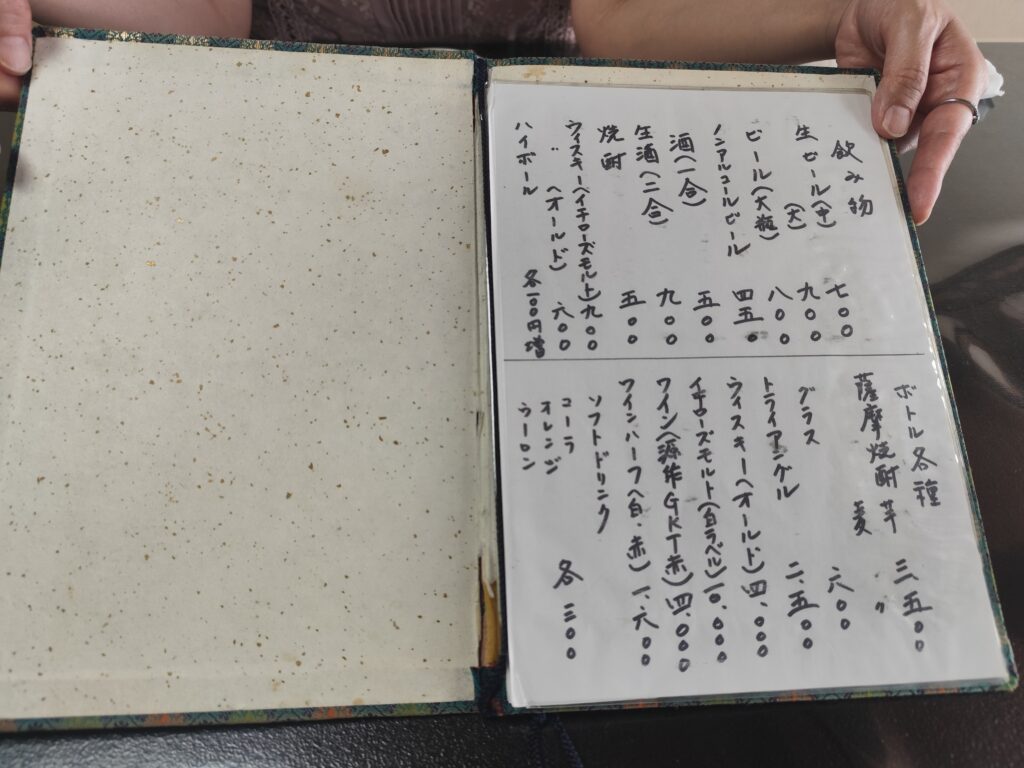 飲み物
生ビール(中) 七〇〇
(大) 九〇〇
ビール(大瓶) 八〇〇
ノンアルコールビール 四五〇
酒(一合) 五〇〇
生酒(二合) 九〇〇
焼酎 五〇〇
ウィスキー(イチローズモルト) 九〇〇
〃 (オールド) 六〇〇
ハイボール 各一〇〇円増
ボトル各種
薩摩焼酎 芋 三、五〇〇
麦 〃
グラス 六〇〇
トライアングル 二、五〇〇
ウィスキー(オールド) 四、〇〇〇
イチローズモルト(白ラベル) 一〇、〇〇〇
ワイン(源作GKT赤) 四、〇〇〇
ワインハーフ(白・赤) 一、六〇〇
ソフトドリンク
コーラ
オレンジ 各 三〇〇
ウーロン